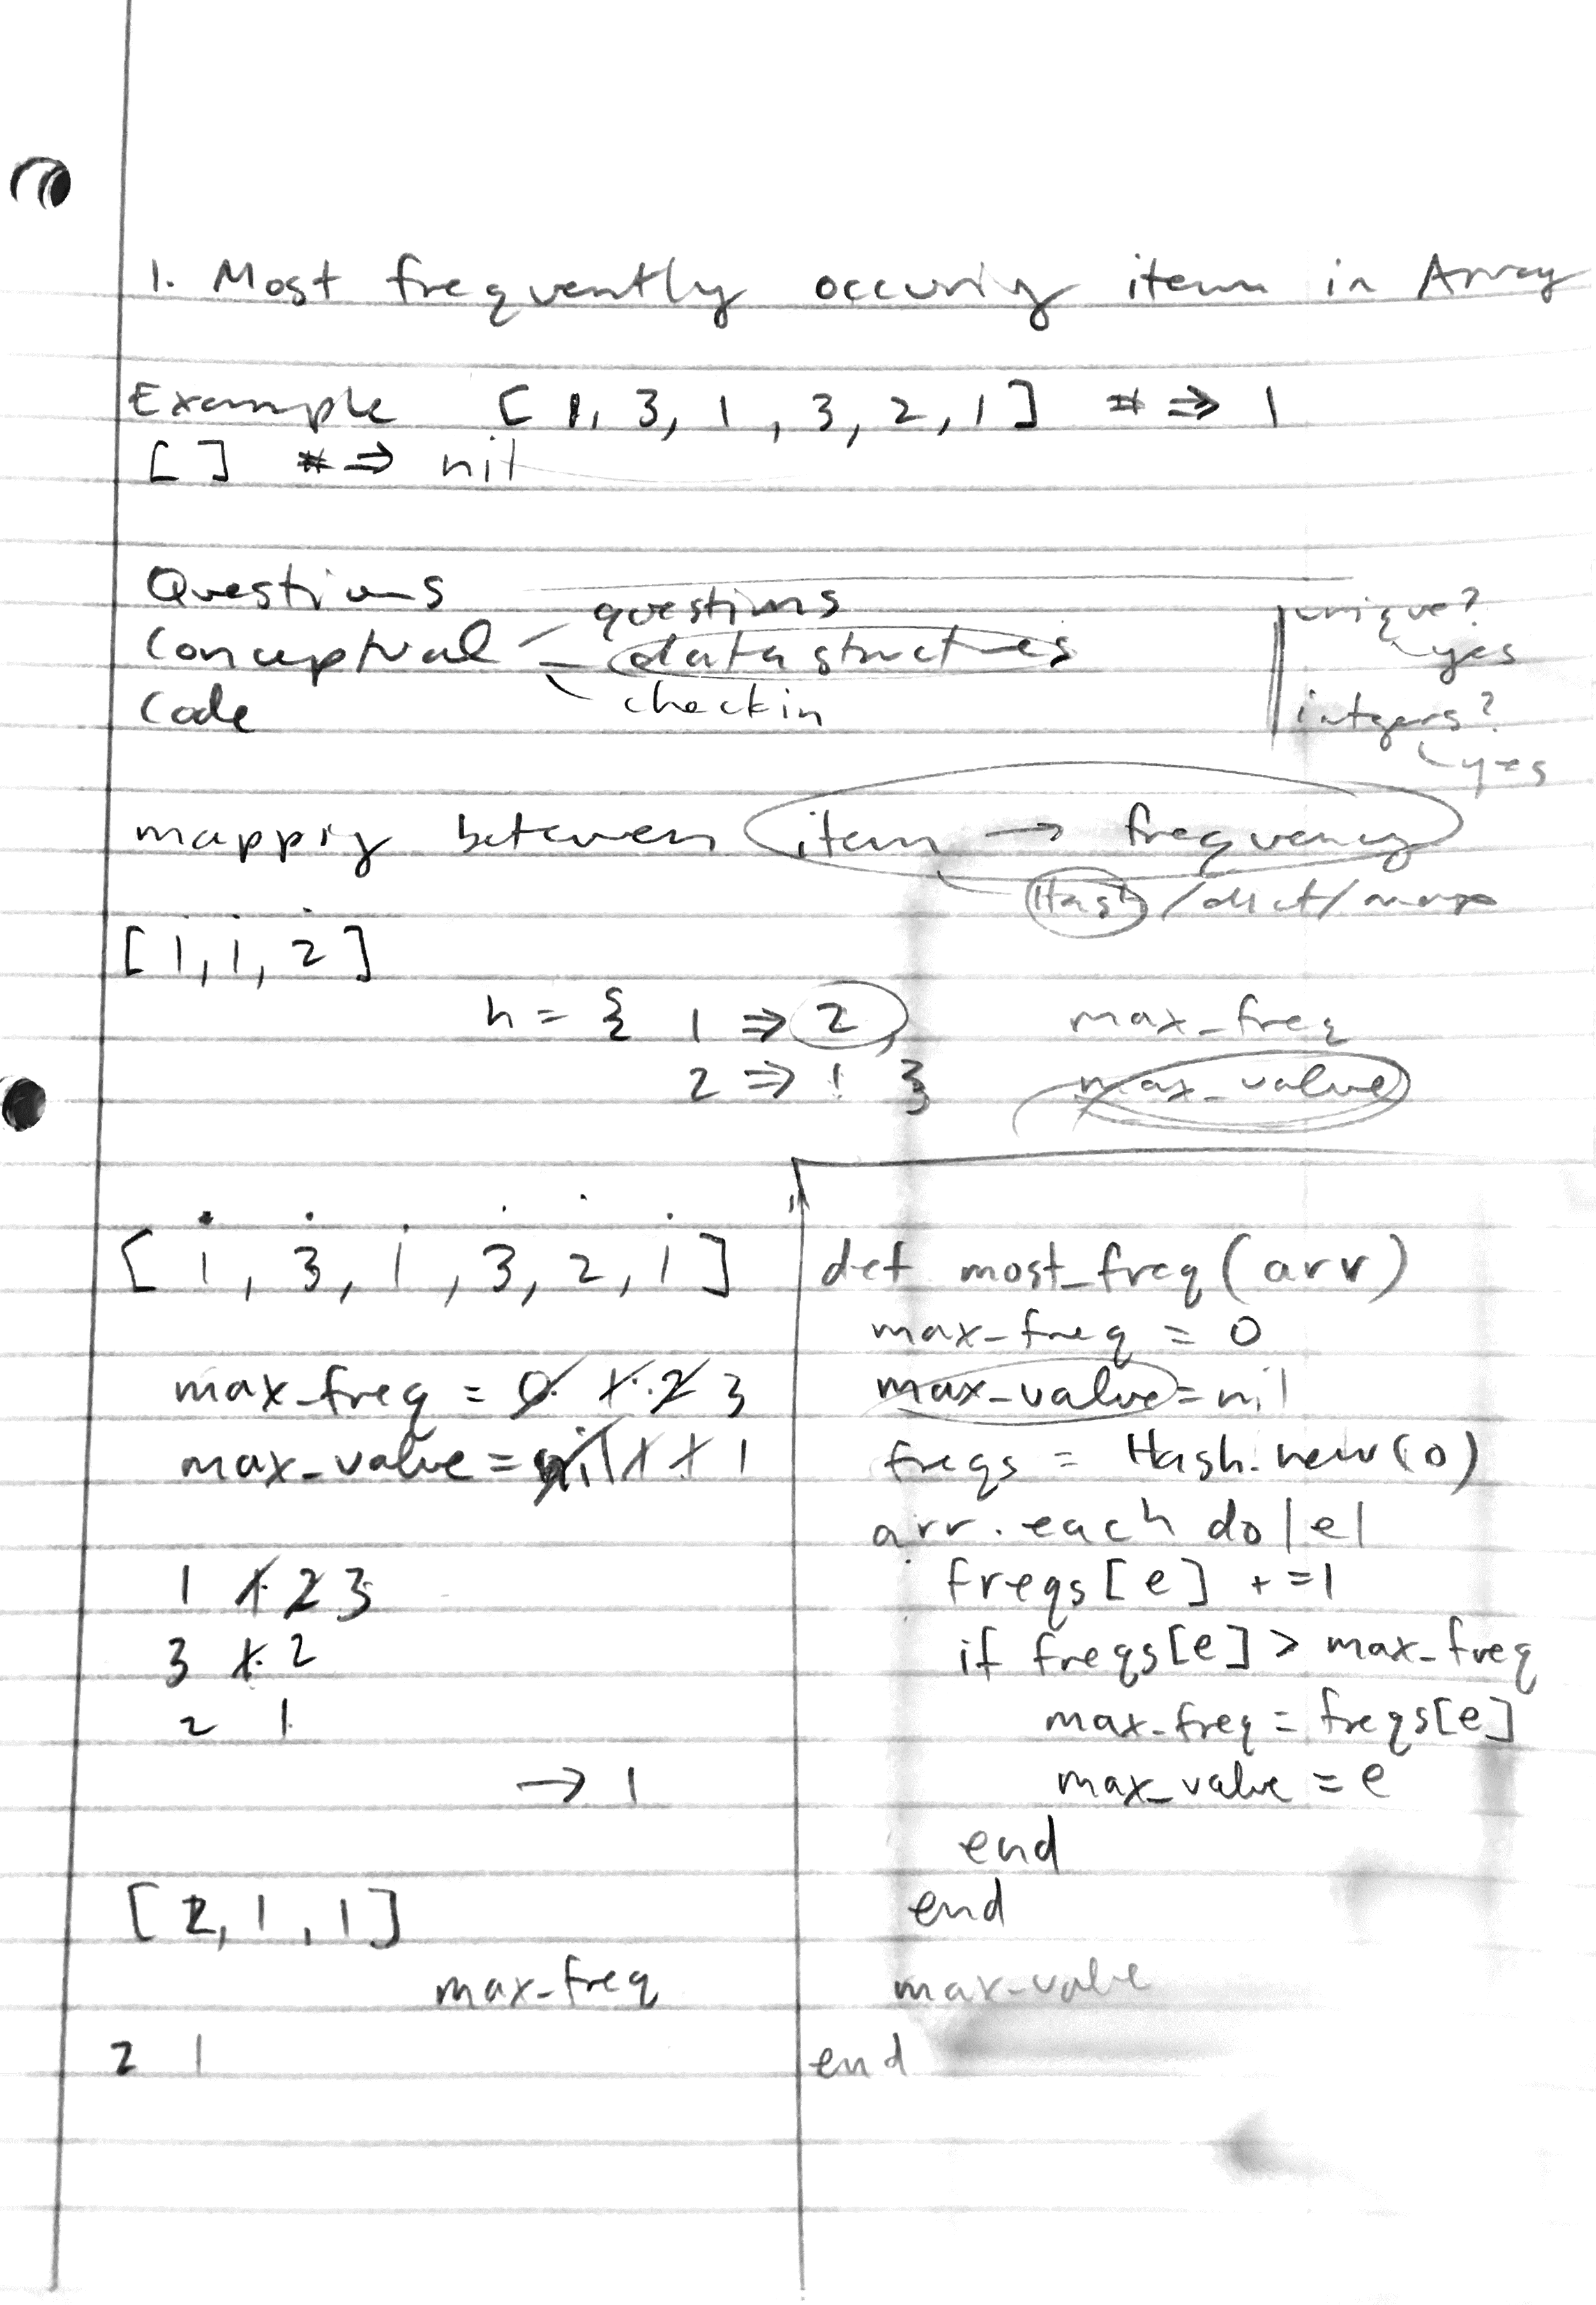 1. Most frequently occuring item in Array
Example [ 1, 3, 1, 3, 2, 1 ] # => 1
[ ] # => nil
Questions
Conceptual - questions
- data structures
- checkin
Code
unique?
yes
integers?
yes
mapping between item → frequency
Hash / dict / map
[ 1, 1, 2 ]
h = { 1 => 2,
2 => 1 }
max_freq
max_value
[ 1, 3, 1, 3, 2, 1 ]
max_freq = 0 1 2 3
max_value = nil 1 1 1
1 1 2 3
3 1 2
2 1
→ 1
[ 2, 1, 1 ]
max_freq
2 1
def most_freq (arr)
max_freq = 0
max_value = nil
freqs = Hash.new(0)
arr.each do |e|
freqs[e] += 1
if freqs[e] > max_freq
max_freq = freqs[e]
max_value = e
end
end
max_value
end